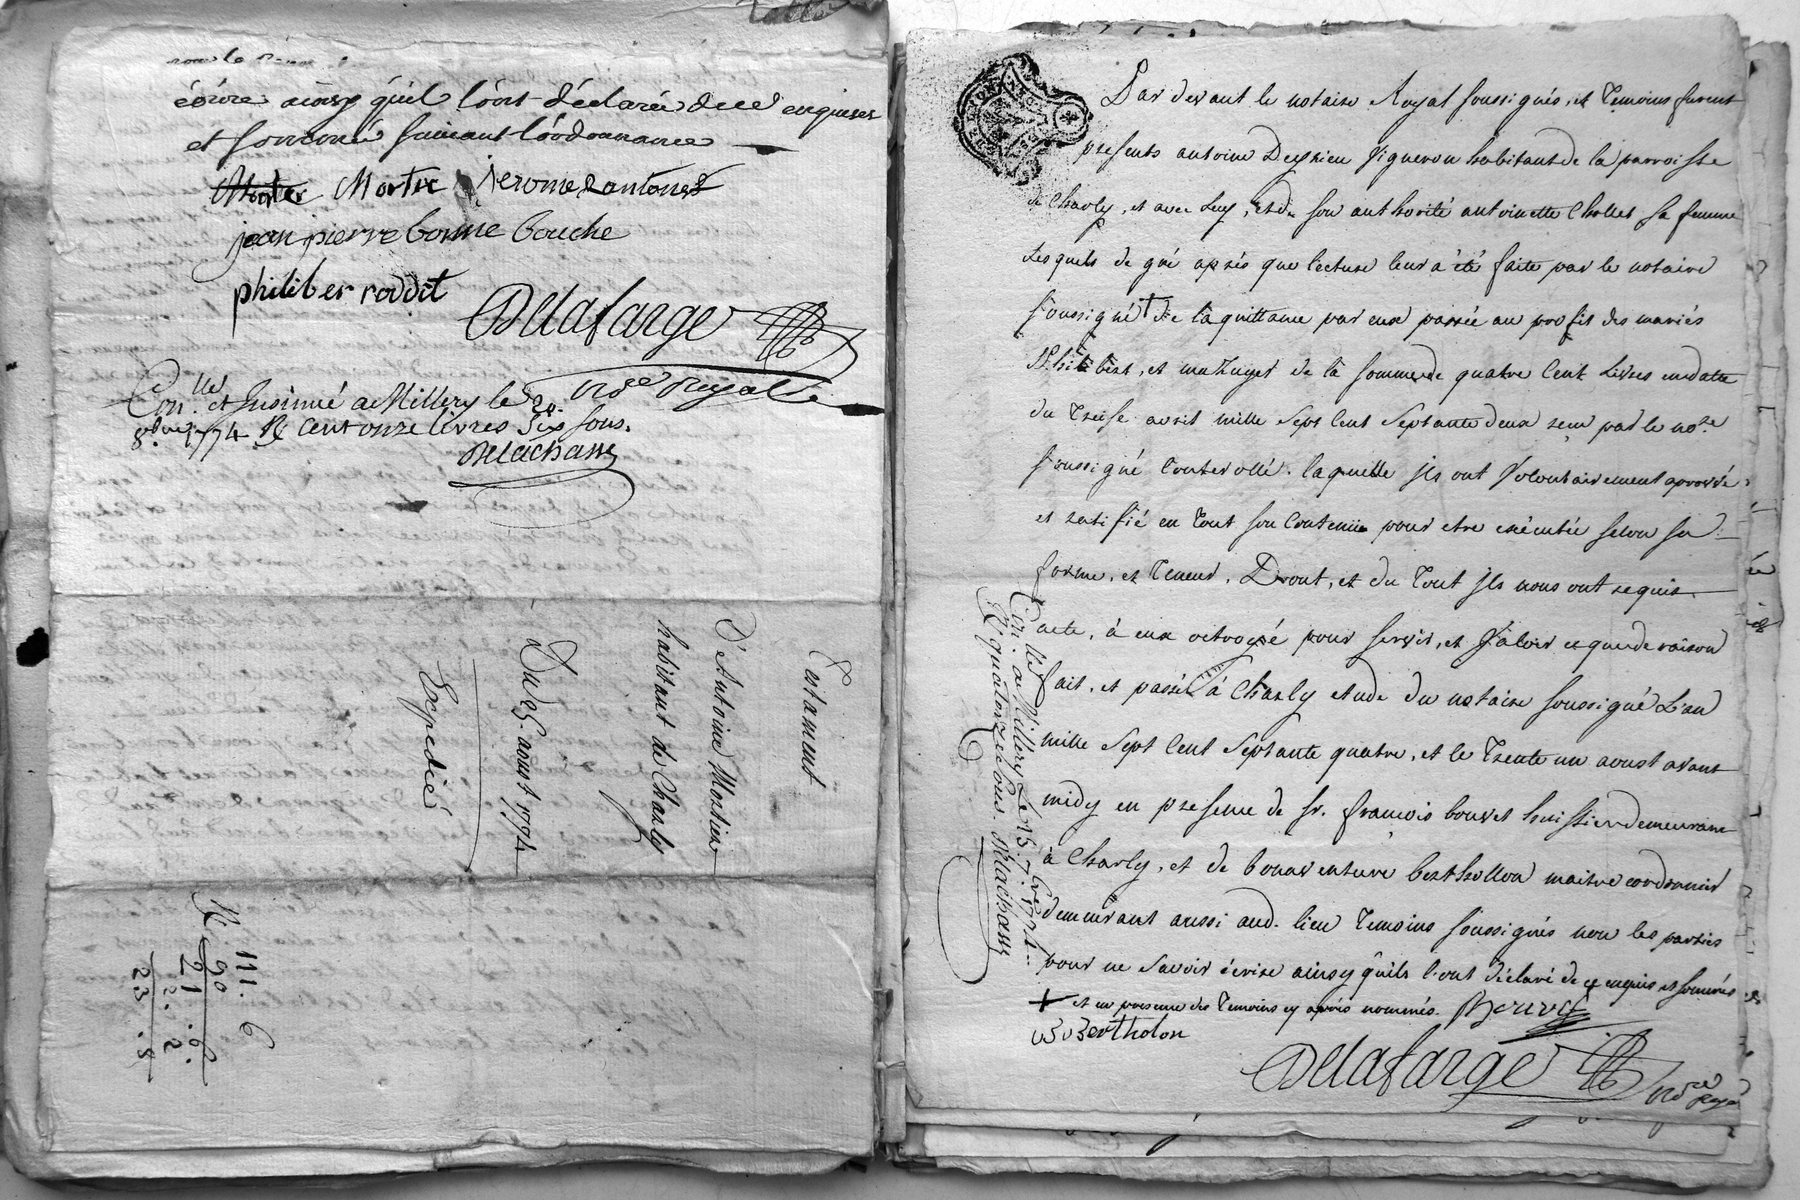 écrire ainsy qu'il l'ont déclaré de ce enquises
et sommé suivant l'ordonnance
Mortier Mortie jerome
jean pierre bonne bouche
philiber roddit
Delafarge
Nore Royal
Con.lle et Insinué a Millery le 20.
8bre 1774 R cent onze livres Six sous.
Delachass
Testament
D'Antoine Mortier
habitant de Charly
Du 25. aoust 1774
Expedié
R 111. 6
90
21. 6.
2. 2
23. 8
Par devant le notaire Royal soussignés, et Temoins furent
presents antoine Vigneron habitant de la parroisse
de Charly, et avec Luy, et de son authorité antoinette Chollet sa femme
Lesquels de gré après que lecture leur a été faite par le notaire
soussigné + de la quittance par eux passée au profit des mariés
Philibert, et de la somme de quatre Cent Livres en datte
du Treise avril mille Sept Cent Septante deux reçu par le nore
soussigné Controllé. laquelle jls ont Volontairement aprouvé
et ratifié en Tout son Contenu pour etre exécutée selon sa
forme, et Teneur, Dont, et du Tout jls nous ont requis
acte, à eux octroyé pour servir, et Valoir ce que de raison
fait, et passé à Charly etude du notaire soussigné L'an
mille Sept Cent Septante quatre, et le Trente un aoust avant
midy en presence de Sr. françois bouvet huissier demeurant
à Charly, et de bonaventure berthollon maitre cordonnier
demeurant aussi aud. lieu Temoins soussignés non les parties
pour ne Savoir écrire ainsy qu'ils l'ont déclaré de ce enquis et sommés
+ et en presence des Temoins cy après nommés. Bouvet
Bertholon
Delafarge
Nore Royal
Con.lle a Millery Le 13. 7bre 1774.
R quatorze sous. Delachass